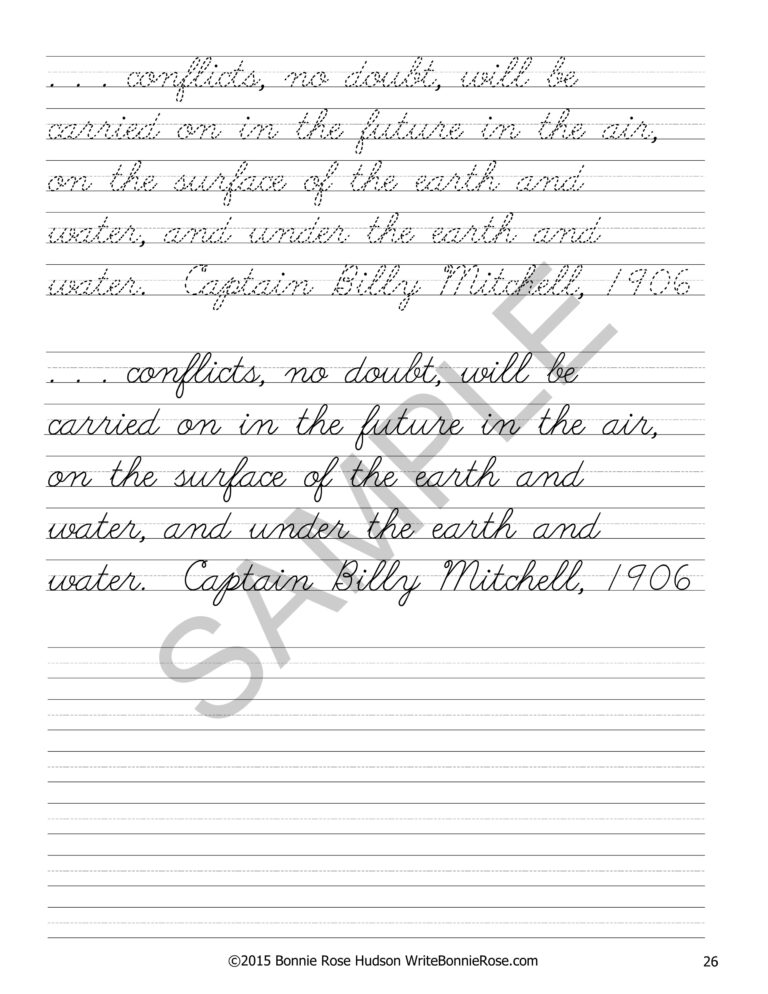 . . . conflicts, no doubt, will be
carried on in the future in the air,
on the surface of the earth and
water, and under the earth and
water. Captain Billy Mitchell, 1906
. . . conflicts, no doubt, will be
carried on in the future in the air,
on the surface of the earth and
water, and under the earth and
water. Captain Billy Mitchell, 1906
SAMPLE
©2015 Bonnie Rose Hudson WriteBonnieRose.com
26